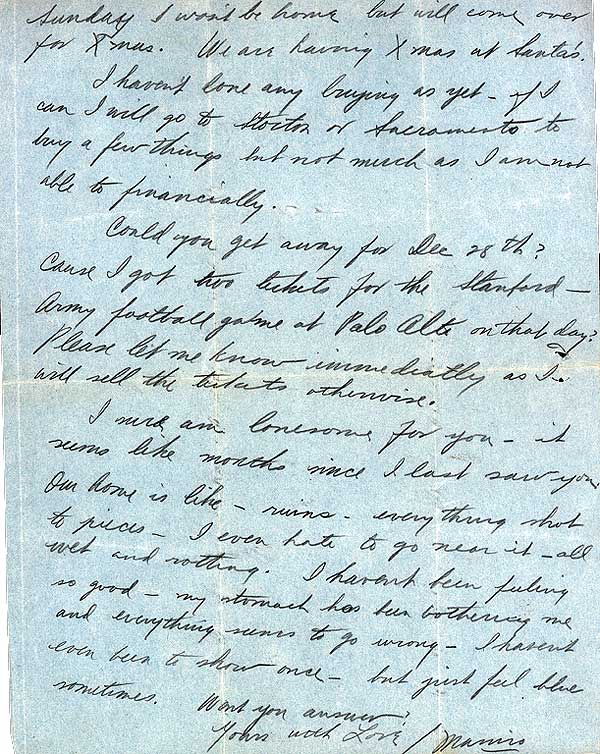 Sunday I won't be home but will come over
for Xmas. We are having Xmas at Santa's.
I haven't done any buying as yet - if I
can I will go to Stocton or Sacramento to
buy a few things but not much as I am not
able to financially.
Could you get away for Dec 28th?
Cause I got two tickets for the Stanford -
Army football game at Palo Alto on that day?
Please let me know immediatly as I
will sell the tickets otherwise.
I sure am lonesome for you - it
seems like months since I last saw you.
Our home is like - ruins - everything shot
to pieces - I even hate to go near it - all
wet and rotting. I haven't been feeling
so good - my stomach has been bothering me
and everything seems to go wrong - I haven't
even been to show once - but just feel blue
sometimes. Wont you answer?
Yours with Love /